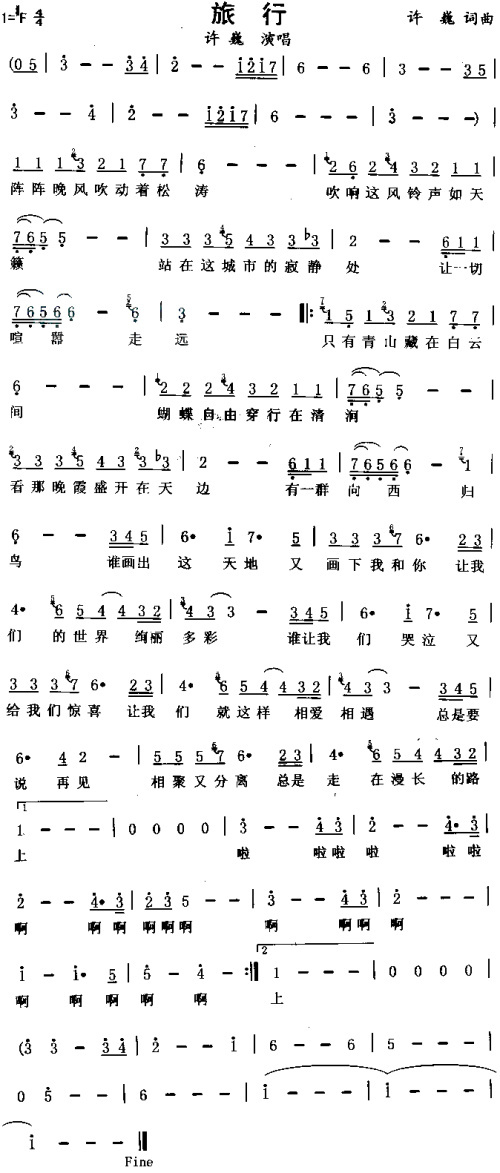 旅 行
1=F 4/4 许 巍 词曲
许 巍 演唱
(0 5 | 3 - - 3 4 | 2 - - i 2 i 7 | 6 - - 6 | 3 - - 3 5 |
3 - - 4 | 2 - - i 2 i 7 | 6 - - - | 3 - - -) |
1 1 1 3 2 1 7 7 | 6 - - - | 2 6 2 4 3 2 1 1 |
阵阵晚风吹动着松 涛 吹响这风铃声如天
7 6 5 5 - - | 3 3 3 5 4 3 3 b3 | 2 - - 6 1 1 |
籁 站在这城市的寂静 处 让一切
7 6 5 6 6 - 6 | 3 - - - |: 1 5 1 3 2 1 7 7 |
喧 嚣 走 远 只有青山藏在白云
6 - - - | 2 2 2 4 3 2 1 1 | 7 6 5 5 - - |
间 蝴蝶自由穿行在清 涧
3 3 3 5 4 3 3 b3 | 2 - - 6 1 1 | 7 6 5 6 6 - 1 |
看那晚霞盛开在天 边 有一群 向 西 归
6 - - 3 4 5 | 6 · i 7 · 5 | 3 3 3 7 6 · 2 3 |
鸟 谁画出 这 天地 又 画下我和你 让我
4 · 6 5 4 4 3 2 | 4 3 3 - 3 4 5 | 6 · i 7 · 5 |
们 的世界 绚丽 多彩 谁让我 们 哭泣 又
3 3 3 7 6 · 2 3 | 4 · 6 5 4 4 3 2 | 4 3 3 - 3 4 5 |
给我们惊喜 让我 们 就这样 相爱 相遇 总是要
6 · 4 2 - | 5 5 5 7 6 · 2 3 | 4 · 6 5 4 4 3 2 |
说 再见 相聚又分离 总是 走 在漫长 的路
1.
1 - - - | 0 0 0 0 | 3 - - 4 3 | 2 - - 4 · 3 |
上 啦 啦啦 啦 啦啦
2 - - 4 · 3 | 2 3 5 - - | 3 - - 4 3 | 2 - - - |
啊 啊 啊 啊啊啊 啊 啊啊 啊
2
i - i · 5 | 5 - 4 - :| 1 - - - | 0 0 0 0 |
啊 啊 啊 啊 啊 上
(3 3 - - 3 4 | 2 - - i | 6 - - 6 | 5 - - - |
0 5 - - | 6 - - - | i - - - | i - - - |
i - - - |
Fine